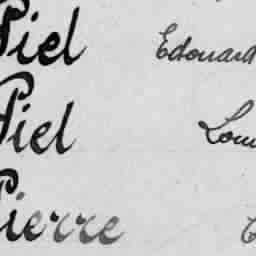 Piel Edouard
Piel
Pierre